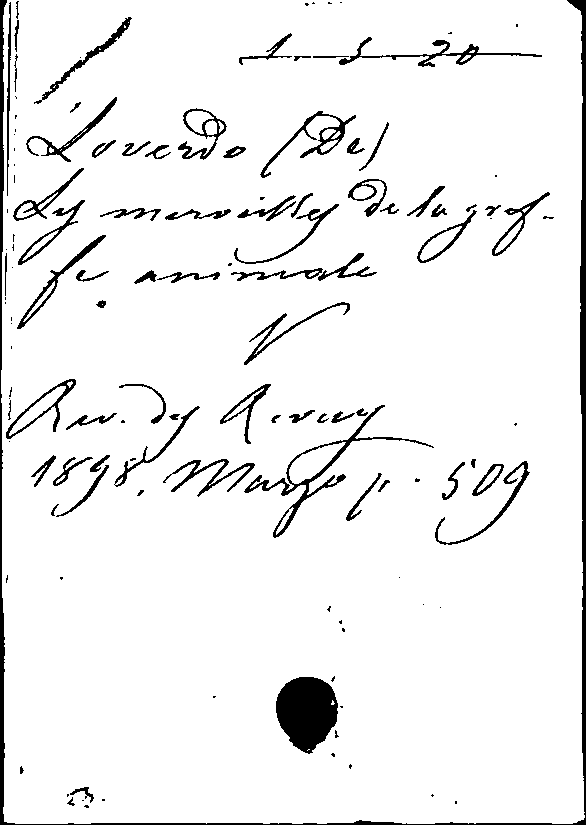 1. 5. 20
Loverdo (De)
Les merveilles de la gref-
fe animale
V
Rev. des Revues
1898. Marzo p. 509